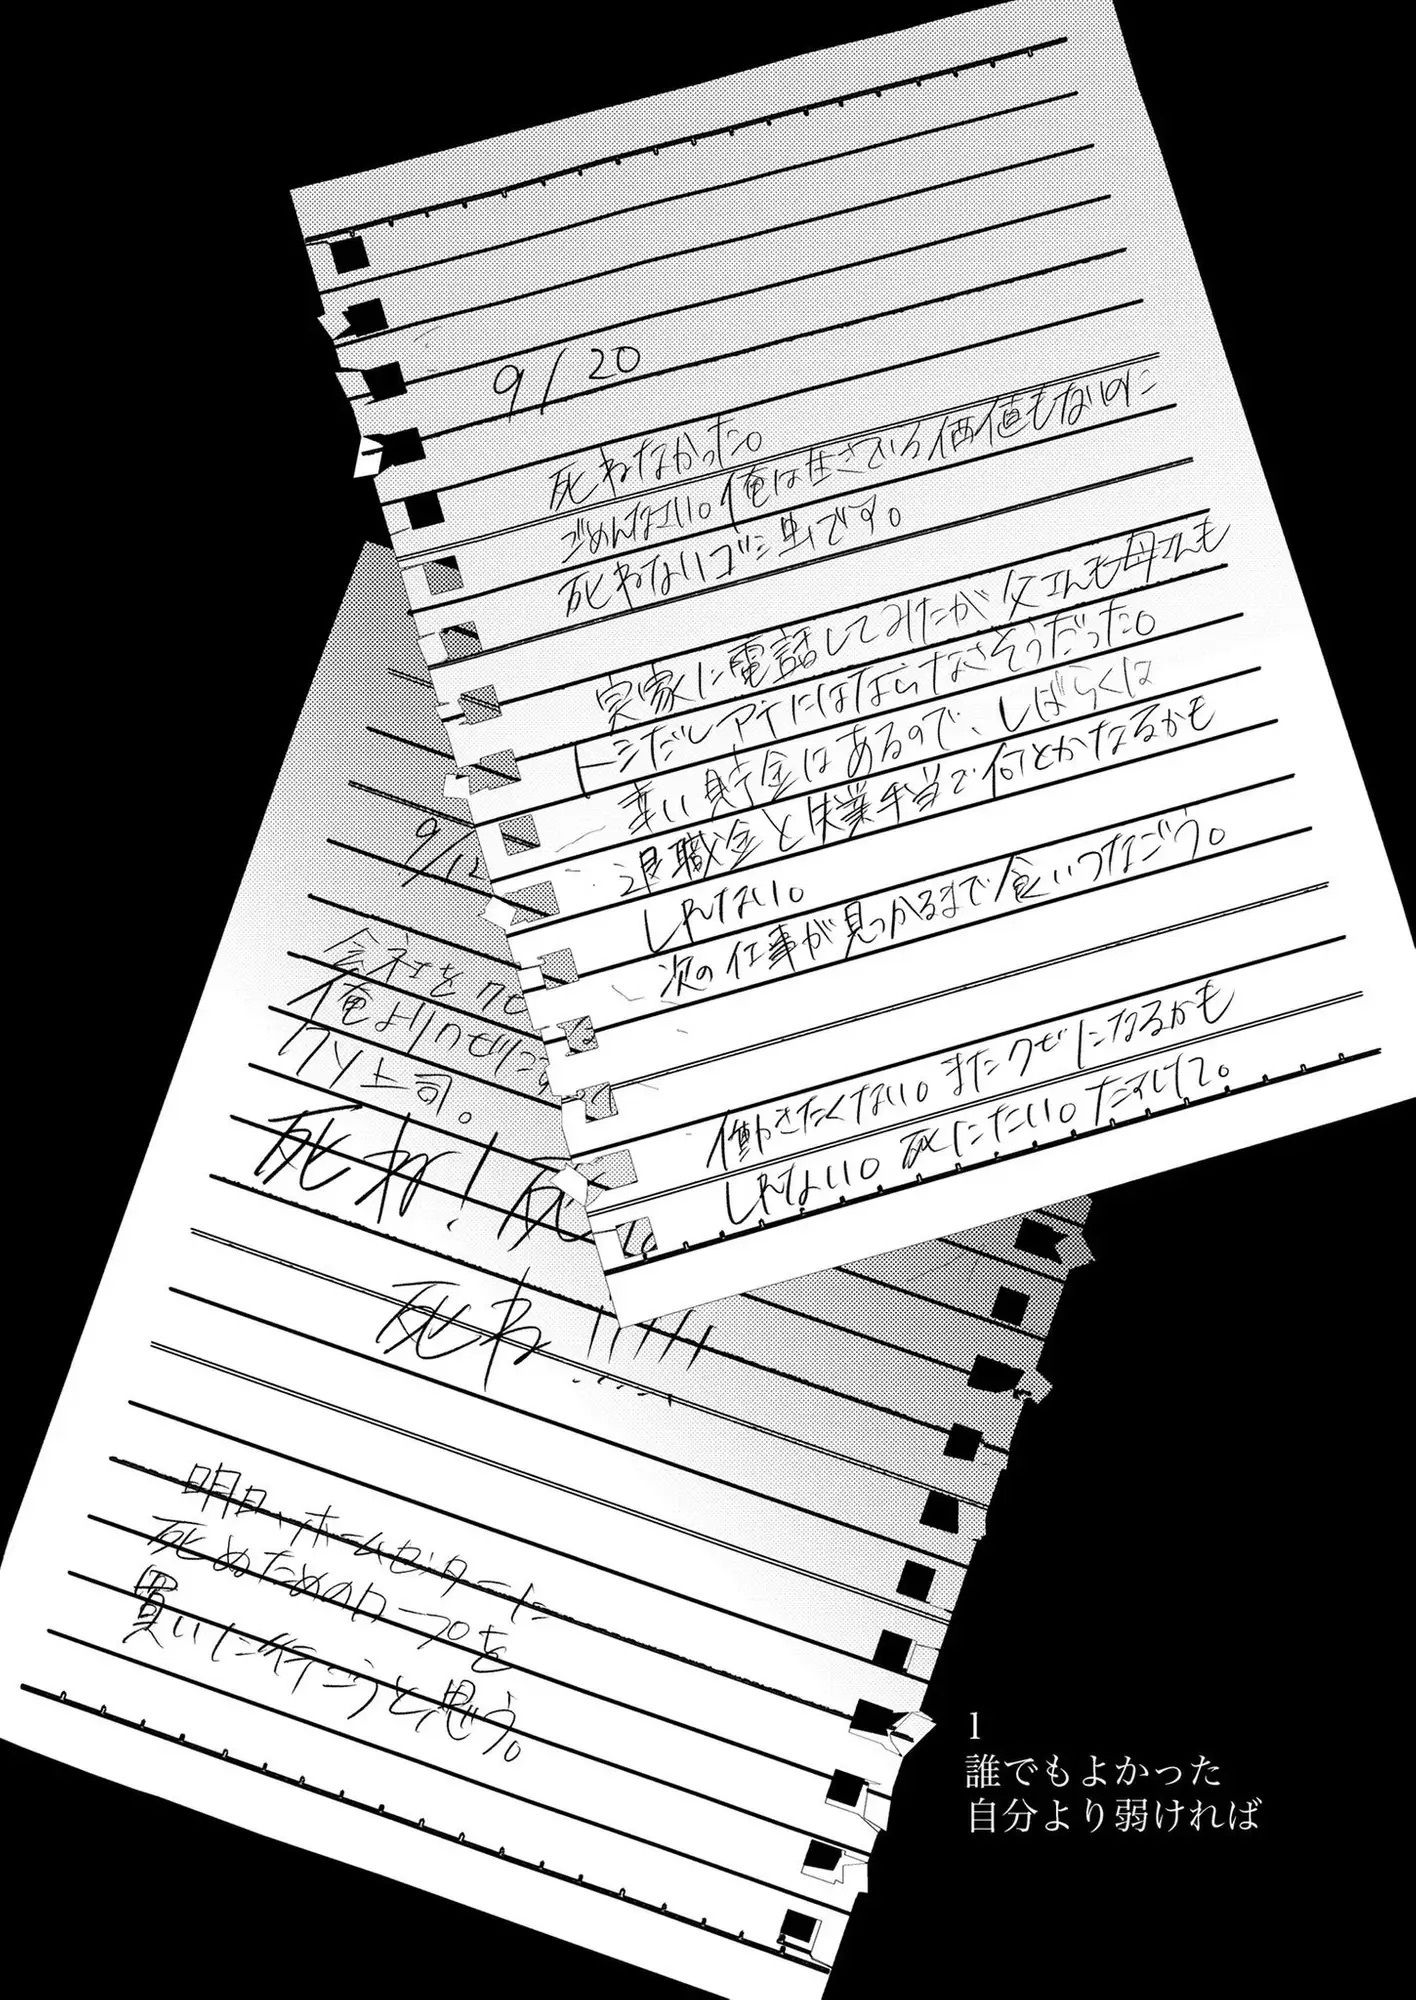 9/20
死ねなかった。
ごめんなさい。俺は生きている価値もないのに
死ねないゴミ虫です。
実家に電話してみたが父さんも母さんも
トシだしアテにはならなさそうだった。
幸い貯金はあるので、しばらくは
退職金と失業手当で何とかなるかも
しれない。
次の仕事が見つかるまで食いつなごう。
働きたくない。またクビになるかも
しれない。死にたい。たすけて。
9/12
会社をクビ
俺より
クソ上司。
死ね!死
死ね!!!!!
明日、ホームセンターに
死ぬためのロープを
買いに行こうと思う。
1
誰でもよかった
自分より弱ければ